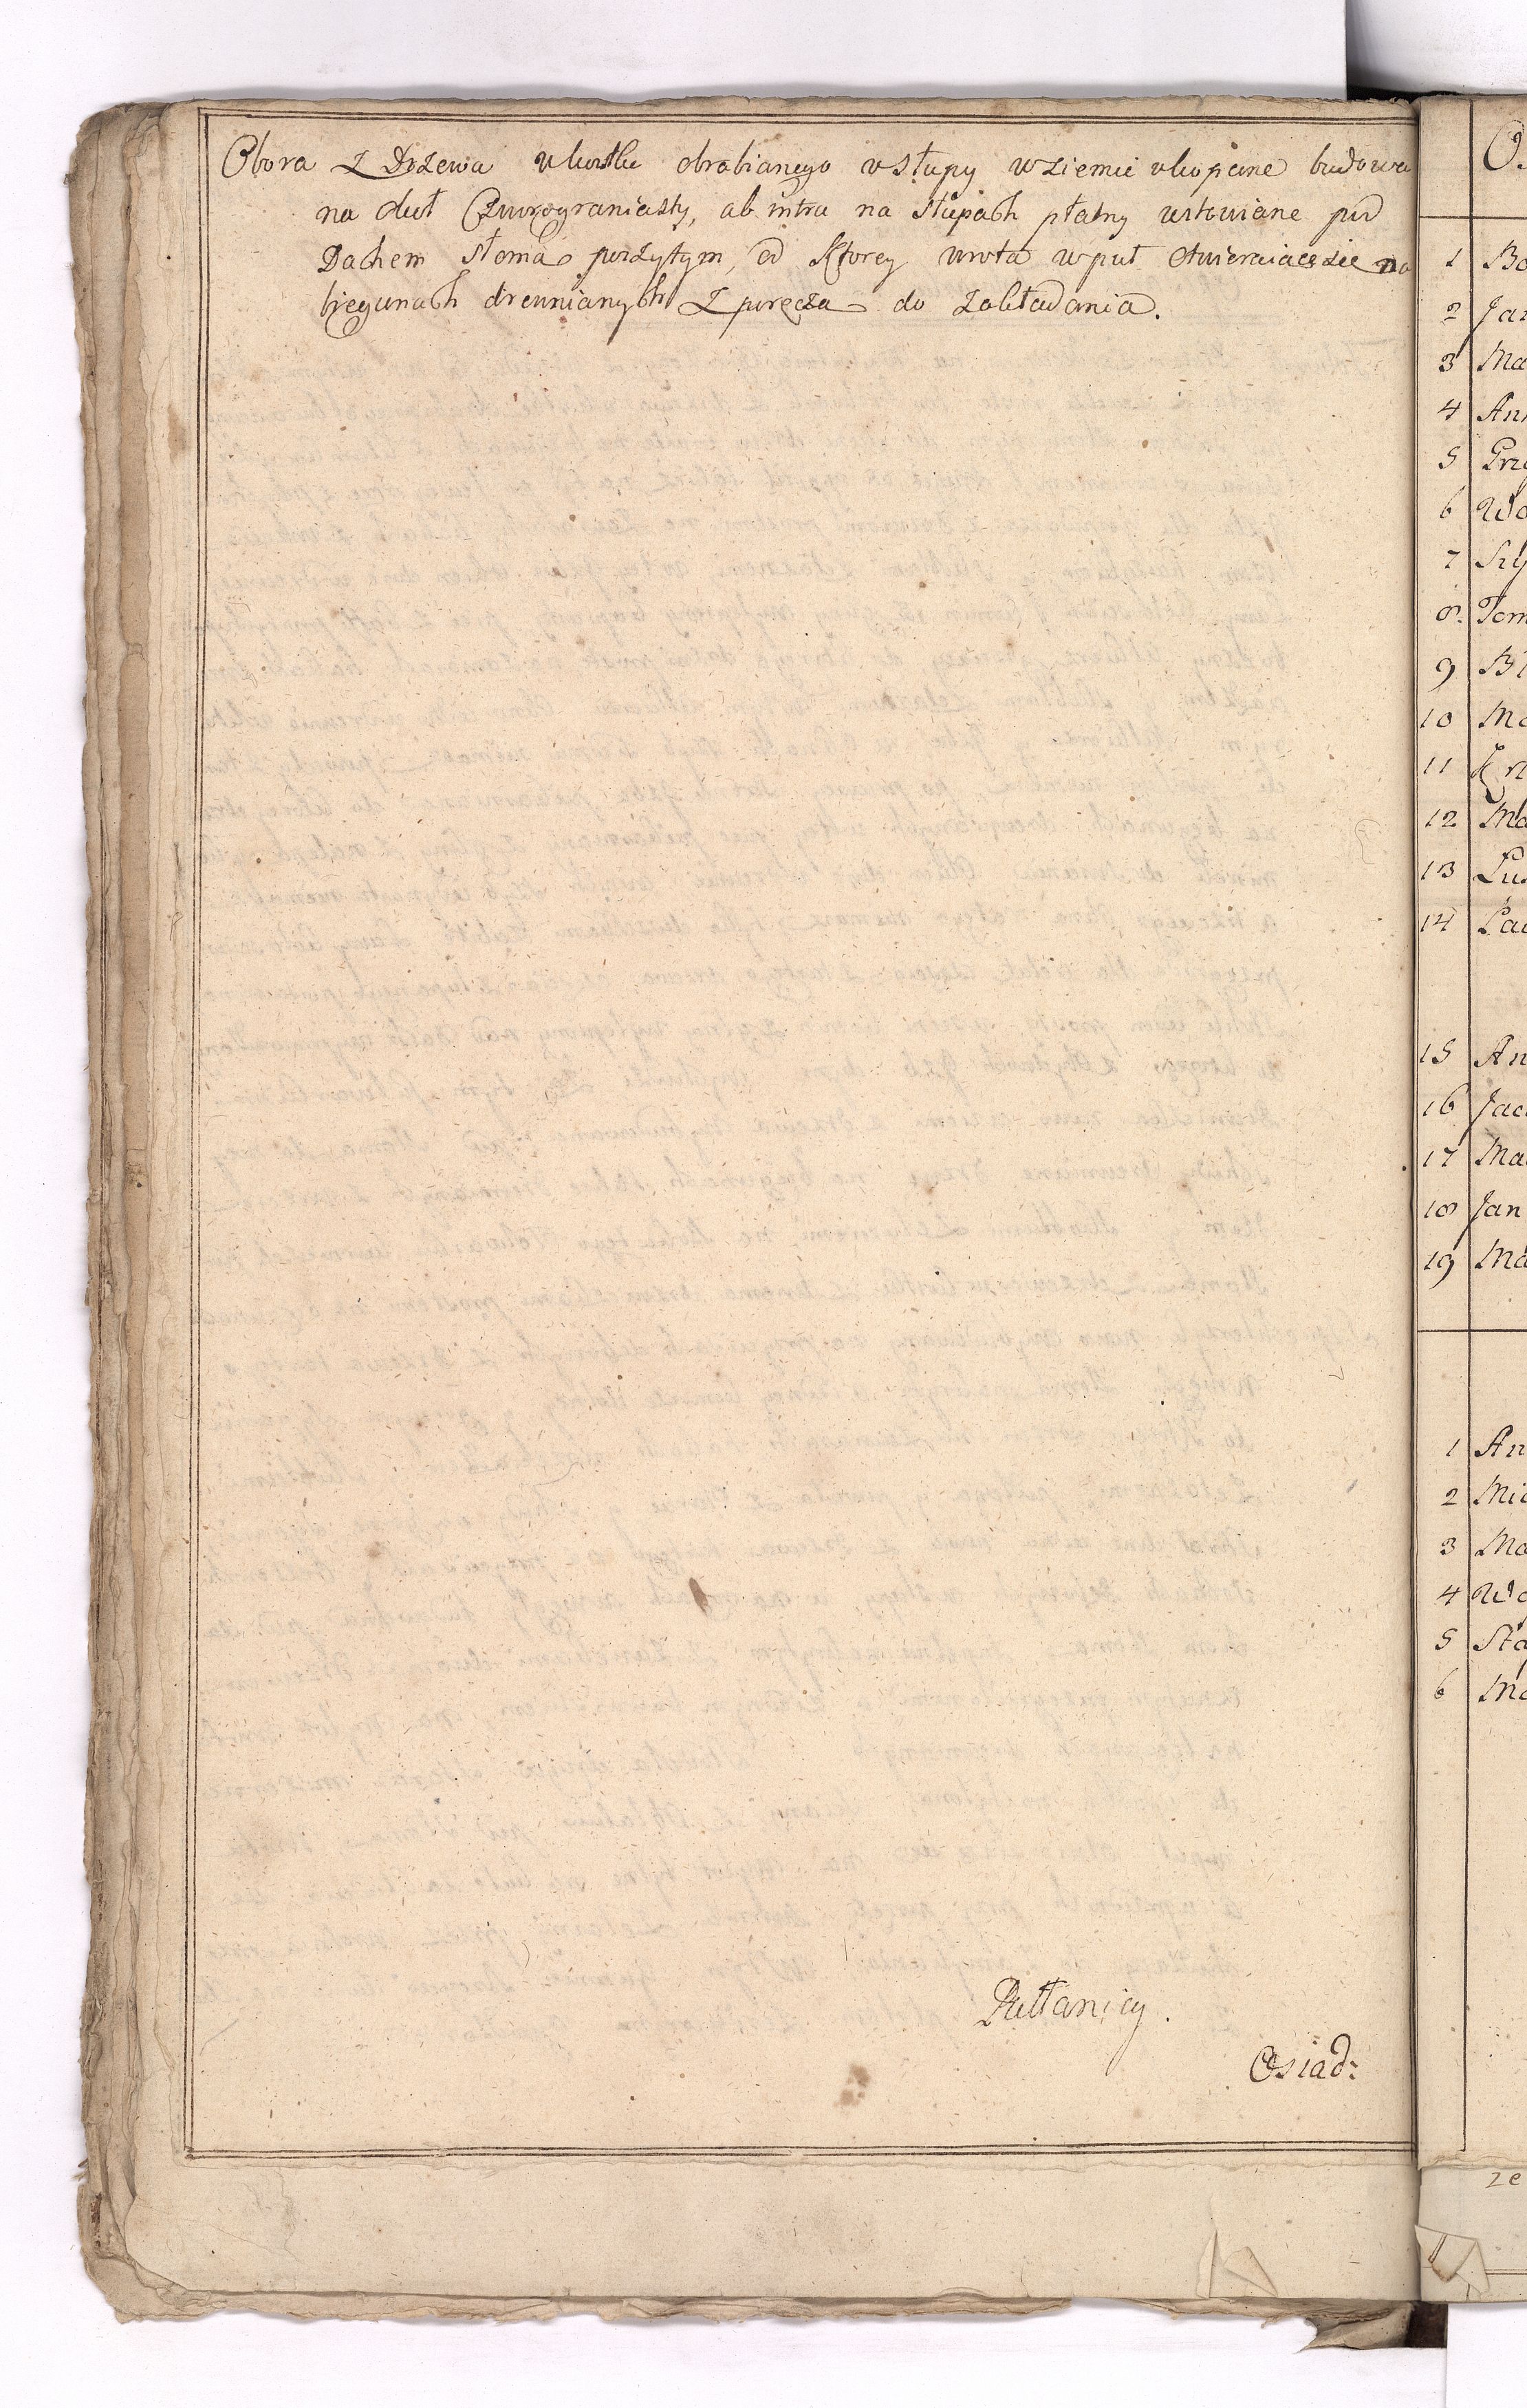 Obora z Drzewa w kostke obrabianego w słupy w ziemie wkopane budowa
na duł Czworograniasty, ab intra na słupach płatny ustawiane pod
Dachem słomą poszytym, od Ktorey wrota w puł otwieraiące sie na
biegunach drewnianych z poręczą do zakładania.
Pułtanicy.
Osiad:
O.
1 Bo
2 Jan
3 Ma
4 Ann
5 Grze
6 Wo
7 Szy
8. Tom
9
10 Ma
11 Krz
12 Ma
13 Łuk
14
15 An
16 Jac
17 Ma
18 Jan
19 Ma
1 An
2 Mic
3 Ma
4 Wo
5 Sta
6 Ma
ze